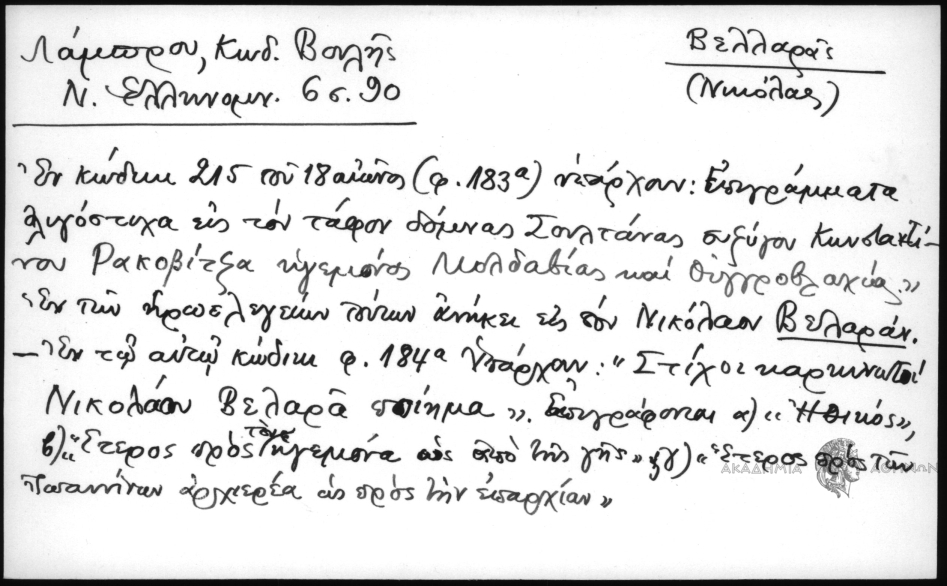 Λάμπρου, Κωδ. Βουλῆς
Ν. Ἑλληνομν. 6 σ. 90
Βελλαρᾶς
(Νικόλαος)
Ἐν κώδικι 215 τοῦ 18 αἰῶνος (φ. 183α) ὑπάρχουν: Ἐπιγράμματα
ὀλιγόστιχα εἰς τὸν τάφον δόμνας Σουλτάνας συζύγου Κωνσταντί-
νου Ρακοβίτζα ἡγεμόνος Μολδαβίας καὶ Οὑγγροβλαχίας."
Ἐν τῶν ἡρωελεγείων τούτων ἀνήκει εἰς τὸν Νικόλαον Βελαρᾶν.
— Ἐν τῷ αὐτῷ κώδικι φ. 184α ὑπάρχουν: "Στίχοι καρκινικοί
Νικολάου Βελαρᾶ ποίημα". Ἐπιγράφονται α) «Ἠθικός»,
β) «Ἕτερος πρὸς τὸν ἡγεμόνα ὡς ἀπὸ τῆς γῆς» γ) «Ἕτερος πρὸς τὸν
Ἰωαννίνων ἀρχιερέα ὡς πρὸς τὴν ἐπαρχίαν»
ΑΚΑΔΗΜΙΑ ΑΘΗΝΩΝ